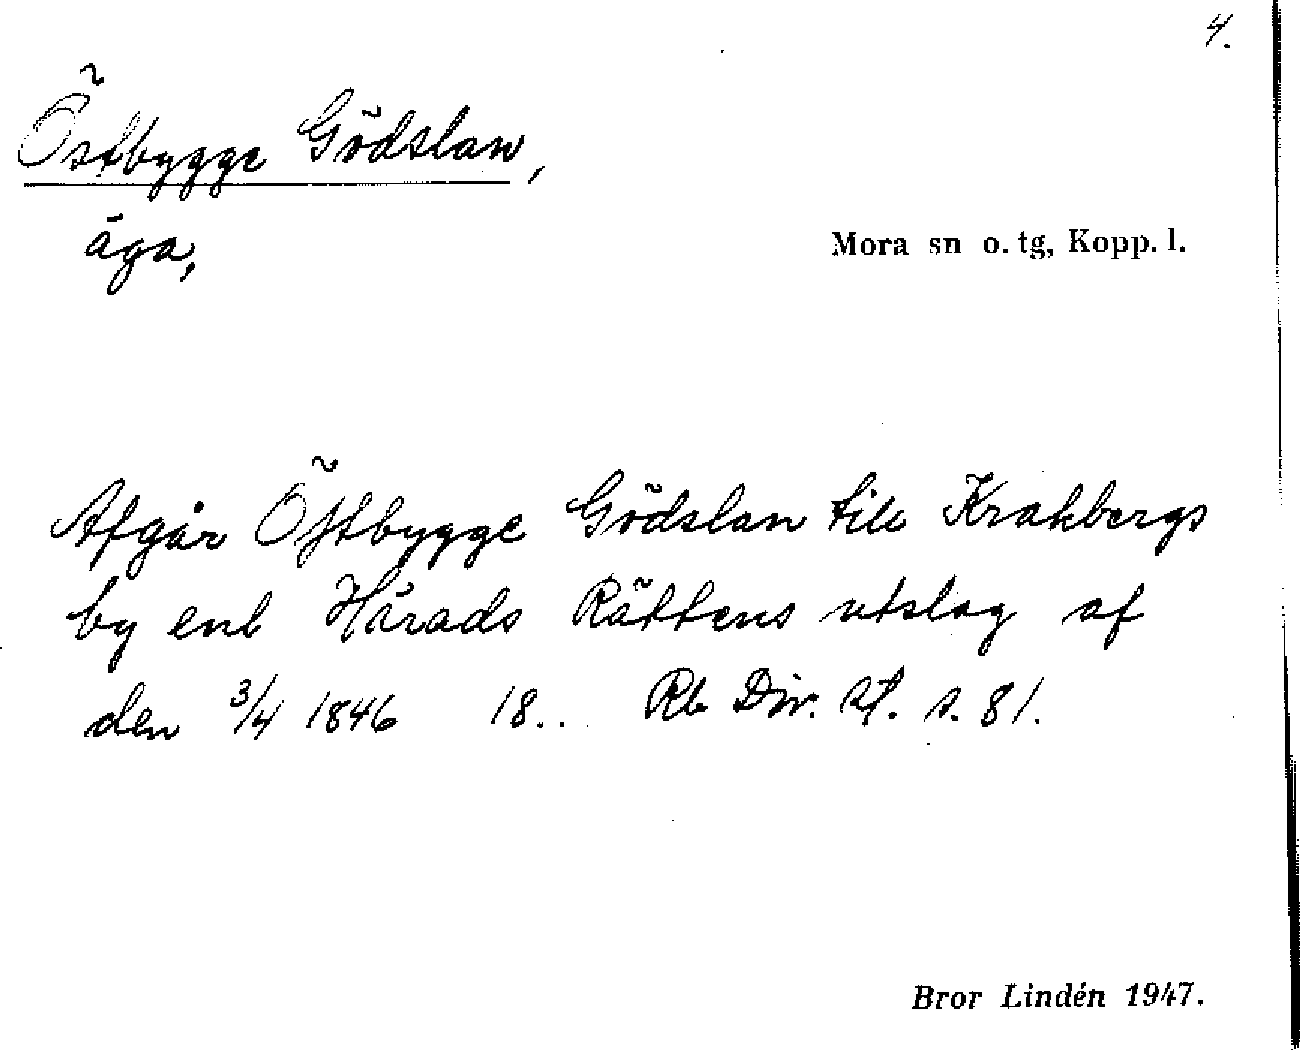 4.
Östbygge Gödslan,
äga,
Mora sn o. tg, Kopp. l.
Afgår Östbygge Gödslan till Krakbergs
by enl Härads Rättens utslag af
den 3/4 1846 18.. Rb Div. st. s. 81.
Bror Lindén 1947.